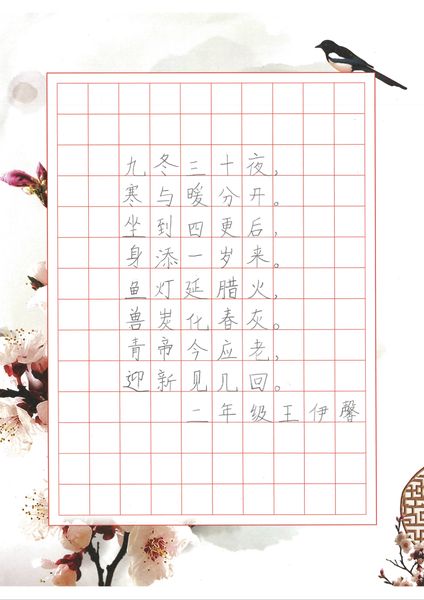 九冬三十夜，
寒与暖分开。
坐到四更后，
身添一岁来。
鱼灯延腊火，
兽炭化春灰。
青帝今应老，
迎新见几回。
二年级王伊馨